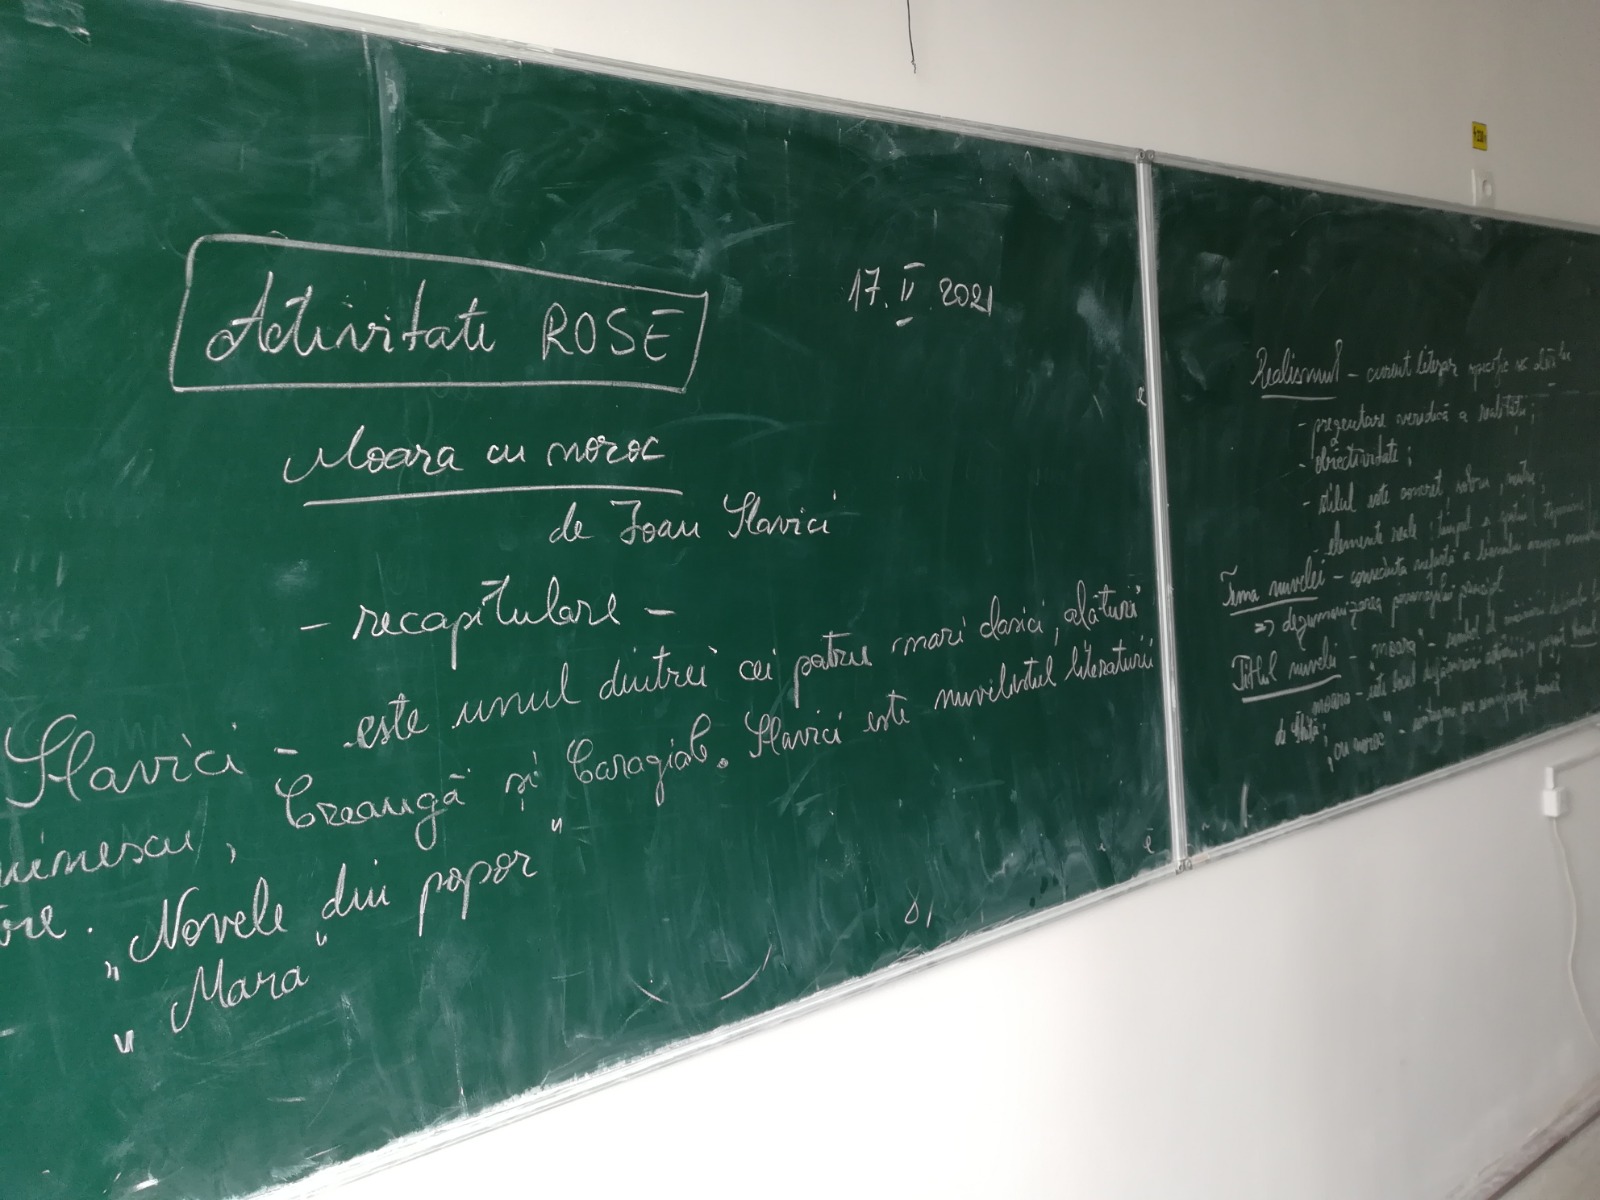 Activitate ROSE
17. II. 2021
Moara cu noroc
de Ioan Slavici
- recapitulare -
Slavici - este unul dintrei cei patru mari clasici, alături
Creangă și Caragiale. Slavici este nuvelistul literaturii
"Novele din popor"
"Mara"
Realismul - curent literar specific
- prezentare veridică a realității;
- obiectivitate;
- stilul este concret, sobru,
- elemente reale, timpul și spațiul
Tema nuvelei - consecința nefastă a banului asupra
=> dezumanizarea personajului principal
Titlul nuvelei - "moara" - simbol al
moara - este locul
de Ghiță;
"cu noroc" -